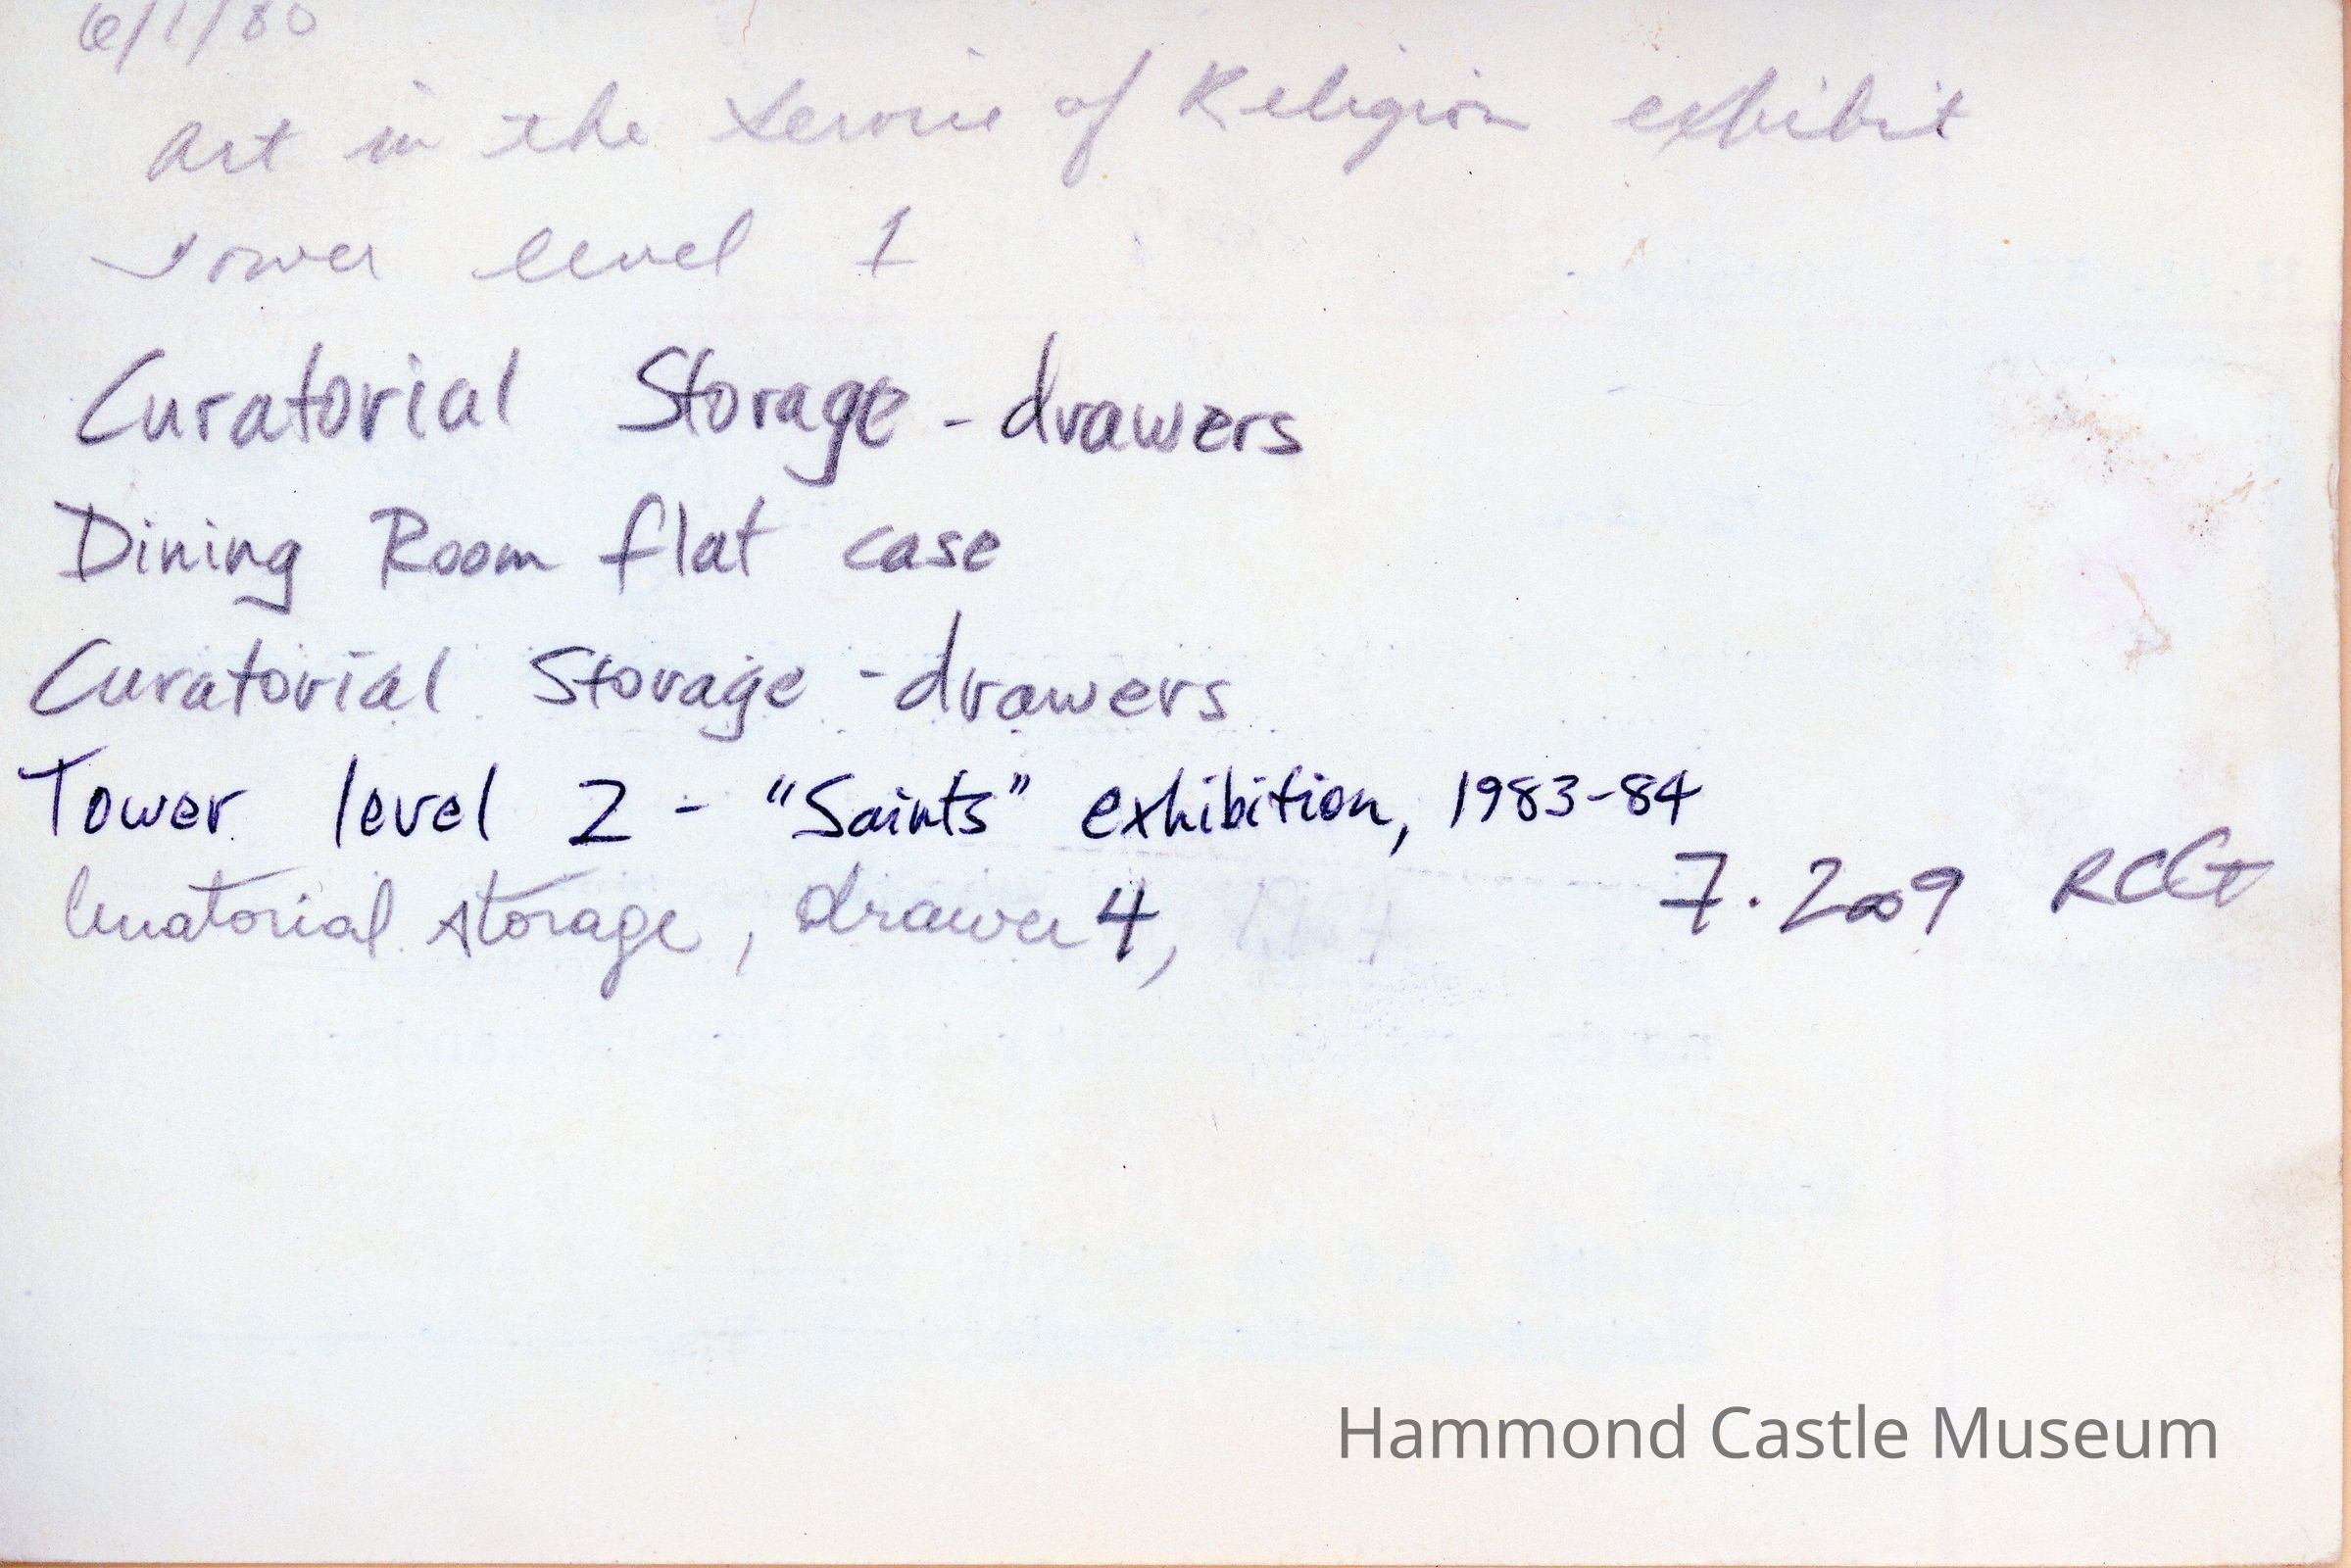 6/1/80
Art in the Service of Religion exhibit
Tower level 1
Curatorial Storage - drawers
Dining Room flat case
Curatorial Storage - drawers
Tower level 2 - "Saints" exhibition, 1983-84
Curatorial storage, drawer 4, 7.2009 RCG
Hammond Castle Museum